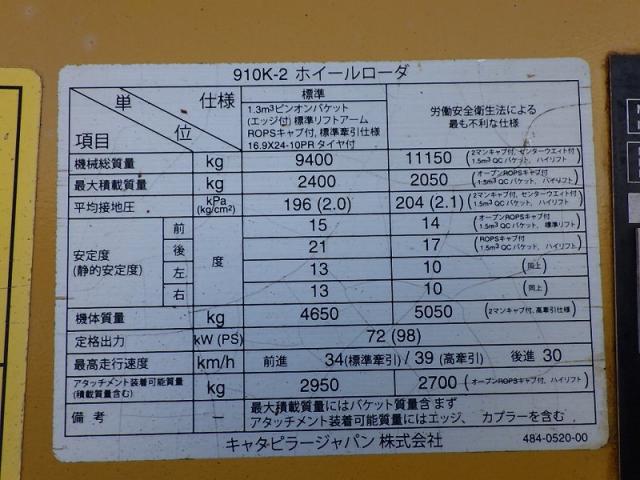 910K-2 ホイールローダ
単位 仕様 項目
標準
1.3m³ピンオンバケット
(エッジ付) 標準リフトアーム
ROPSキャブ付, 標準牽引仕様
16.9X24-10PR タイヤ付
労働安全衛生法による
最も不利な仕様
機械総質量 kg 9400 11150 (2マンキャブ付, センターウエイト付 1.5m³ QC バケット, ハイリフト)
最大積載質量 kg 2400 2050 (オープンROPSキャブ付 1.5m³ QC バケット, ハイリフト)
平均接地圧 kPa (kg/cm²) 196 (2.0) 204 (2.1) (2マンキャブ付, センターウエイト付 1.5m³ QC バケット, ハイリフト)
安定度 (静的安定度) 度
前 15 14 (オープンROPSキャブ付 1.5m³ QC バケット, 標準リフト)
後 21 17 (ROPSキャブ付 1.5m³ QC バケット, ハイリフト)
左 13 10 (同上)
右 13 10 (同上)
機体質量 kg 4650 5050 (2マンキャブ付, 高牽引仕様)
定格出力 kW (PS) 72 (98)
最高走行速度 km/h 前進 34(標準牽引) / 39 (高牽引) 後進 30
アタッチメント装着可能質量 (積載質量含む) kg 2950 2700 (オープンROPSキャブ付, ハイリフト)
備 考 － 最大積載質量にはバケット質量含まず
アタッチメント装着可能質量にはエッジ、カプラーを含む
キャタピラージャパン 株式会社
484-0520-00